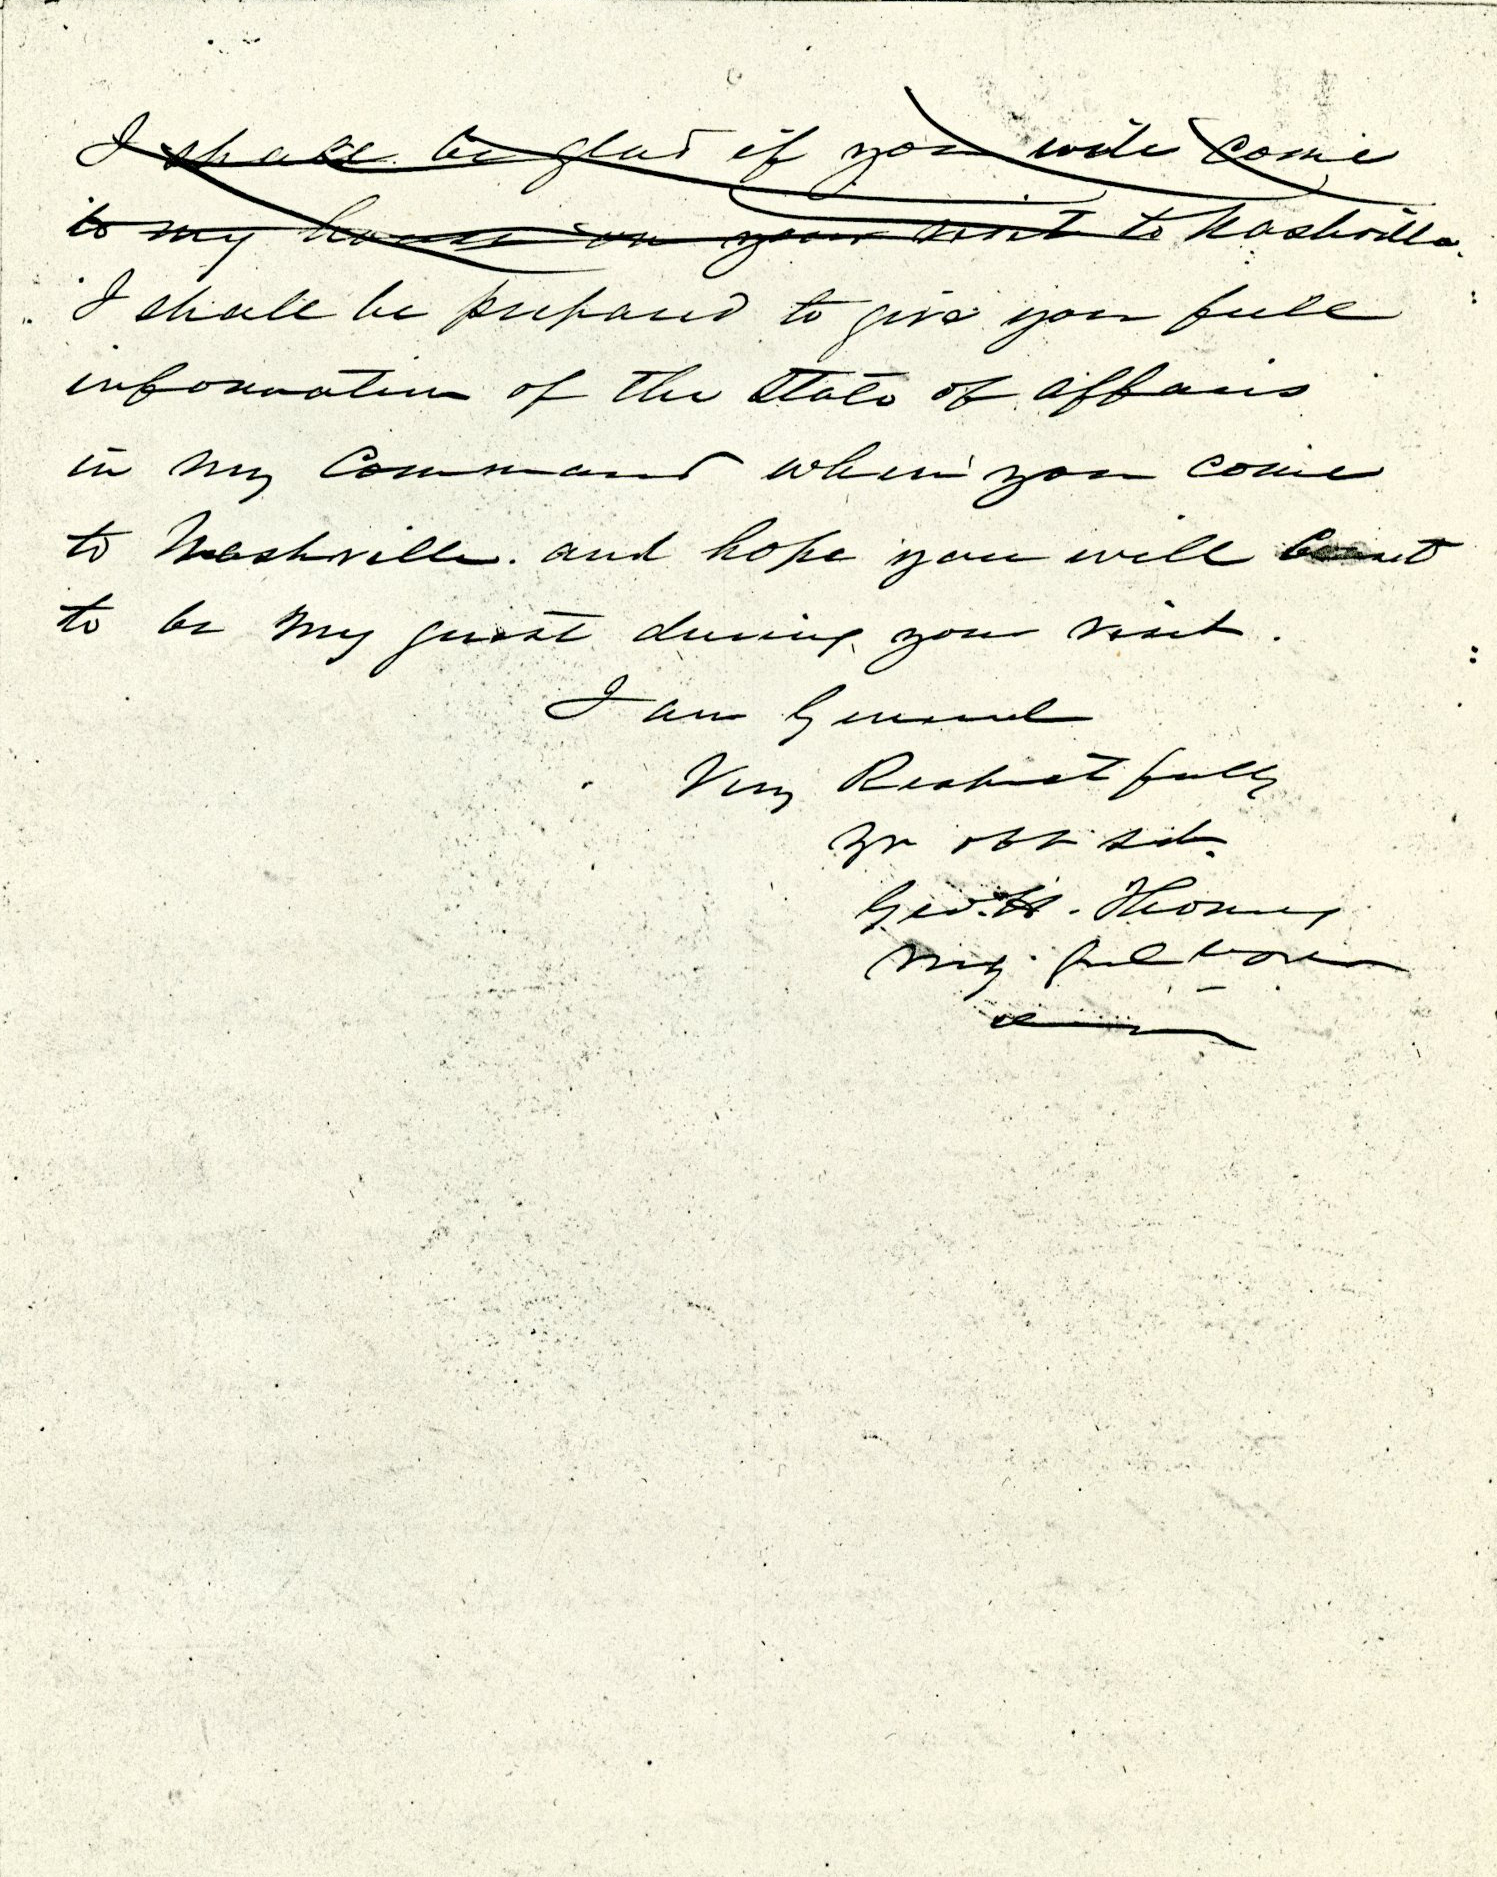 I shall be glad if you will come
to my house on your visit to Nashville.
I shall be prepared to give you full
information of the State of affairs
in my Command when you come
to Nashville. and hope you will
to be my guest during your visit.
I am General
Very Respectfully
Yr obt svt.
Geo. H. Thomas
Maj. Genl